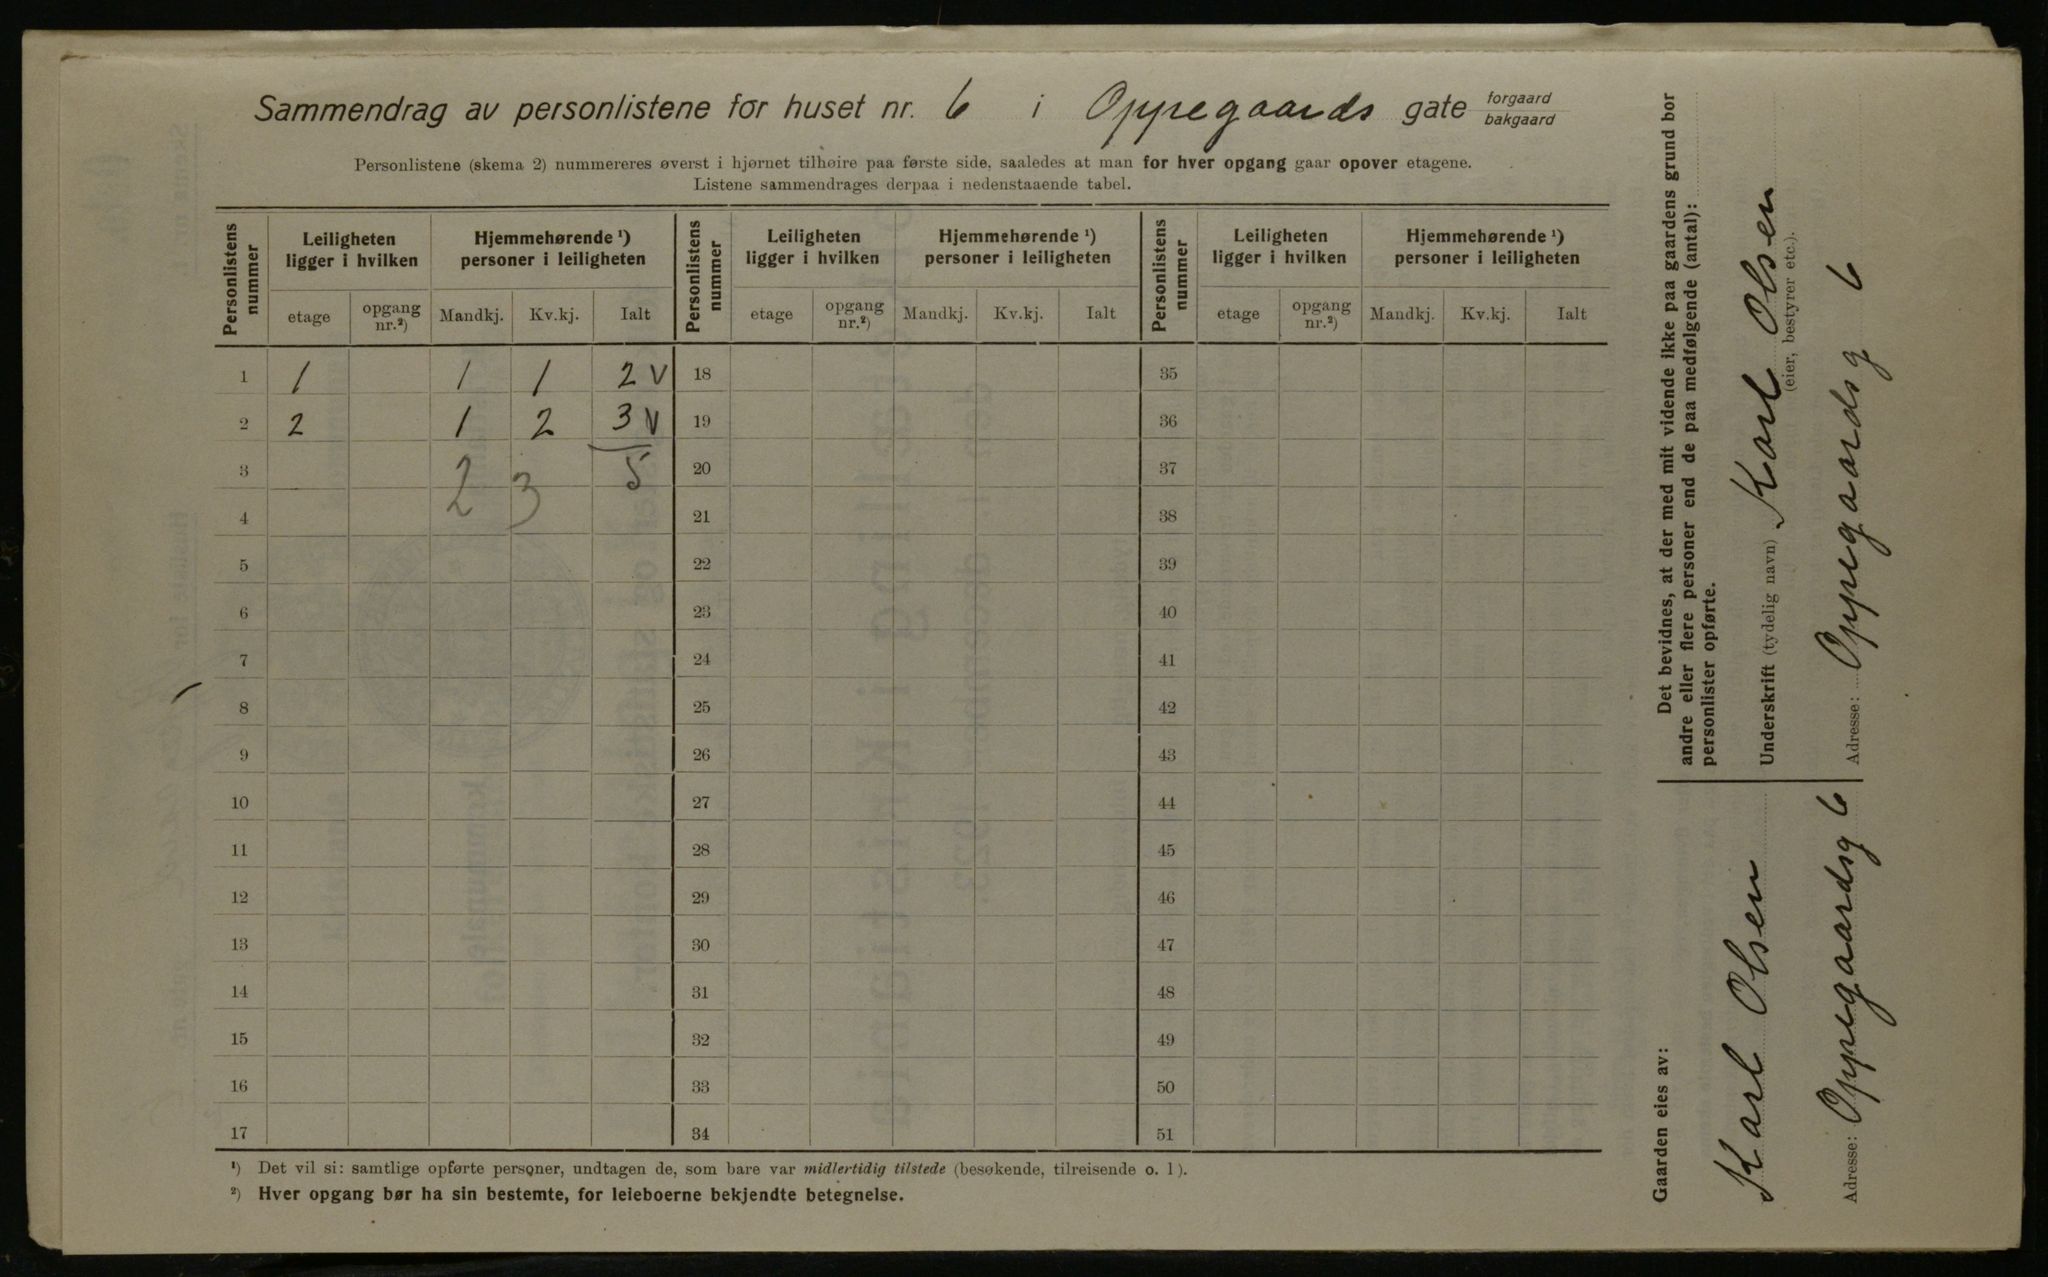 Sammendrag av personlistene for huset nr. 6 i Oppegaards gate forgaard bakgaard
Personlistene (skema 2) nummereres øverst i hjørnet tilhøire paa første side, saaledes at man for hver opgang gaar opover etagene.
Listene sammendrages derpaa i nedenstaaende tabel.
Personlistens nummer Leiligheten ligger i hvilken Hjemmehørende ¹) personer i leiligheten Personlistens nummer Leiligheten ligger i hvilken Hjemmehørende ¹) personer i leiligheten Personlistens nummer Leiligheten ligger i hvilken Hjemmehørende ¹) personer i leiligheten
etage opgang nr.²) Mandkj. Kv.kj. Ialt etage opgang nr.²) Mandkj. Kv.kj. Ialt etage opgang nr.²) Mandkj. Kv.kj. Ialt
1 1 1 1 2 V 18 35
2 2 1 2 3 V 19 36
3 2 3 5 20 37
4 21 38
5 22 39
6 23 40
7 24 41
8 25 42
9 26 43
10 27 44
11 28 45
12 29 46
13 30 47
14 31 48
15 32 49
16 33 50
17 34 51
¹) Det vil si: samtlige opførte personer, undtagen de, som bare var midlertidig tilstede (besøkende, tilreisende o. l).
²) Hver opgang bør ha sin bestemte, for leieboerne bekjendte betegnelse.
Det bevidnes, at der med mit vidende ikke paa gaardens grund bor
andre eller flere personer end de paa medfølgende (antal):
personlister opførte.
Underskrift (tydelig navn) Karl Olsen
(eier, bestyrer etc.).
Adresse: Oppegaardsg 6
Gaarden eies av:
Karl Olsen
Adresse: Oppegaardsg 6